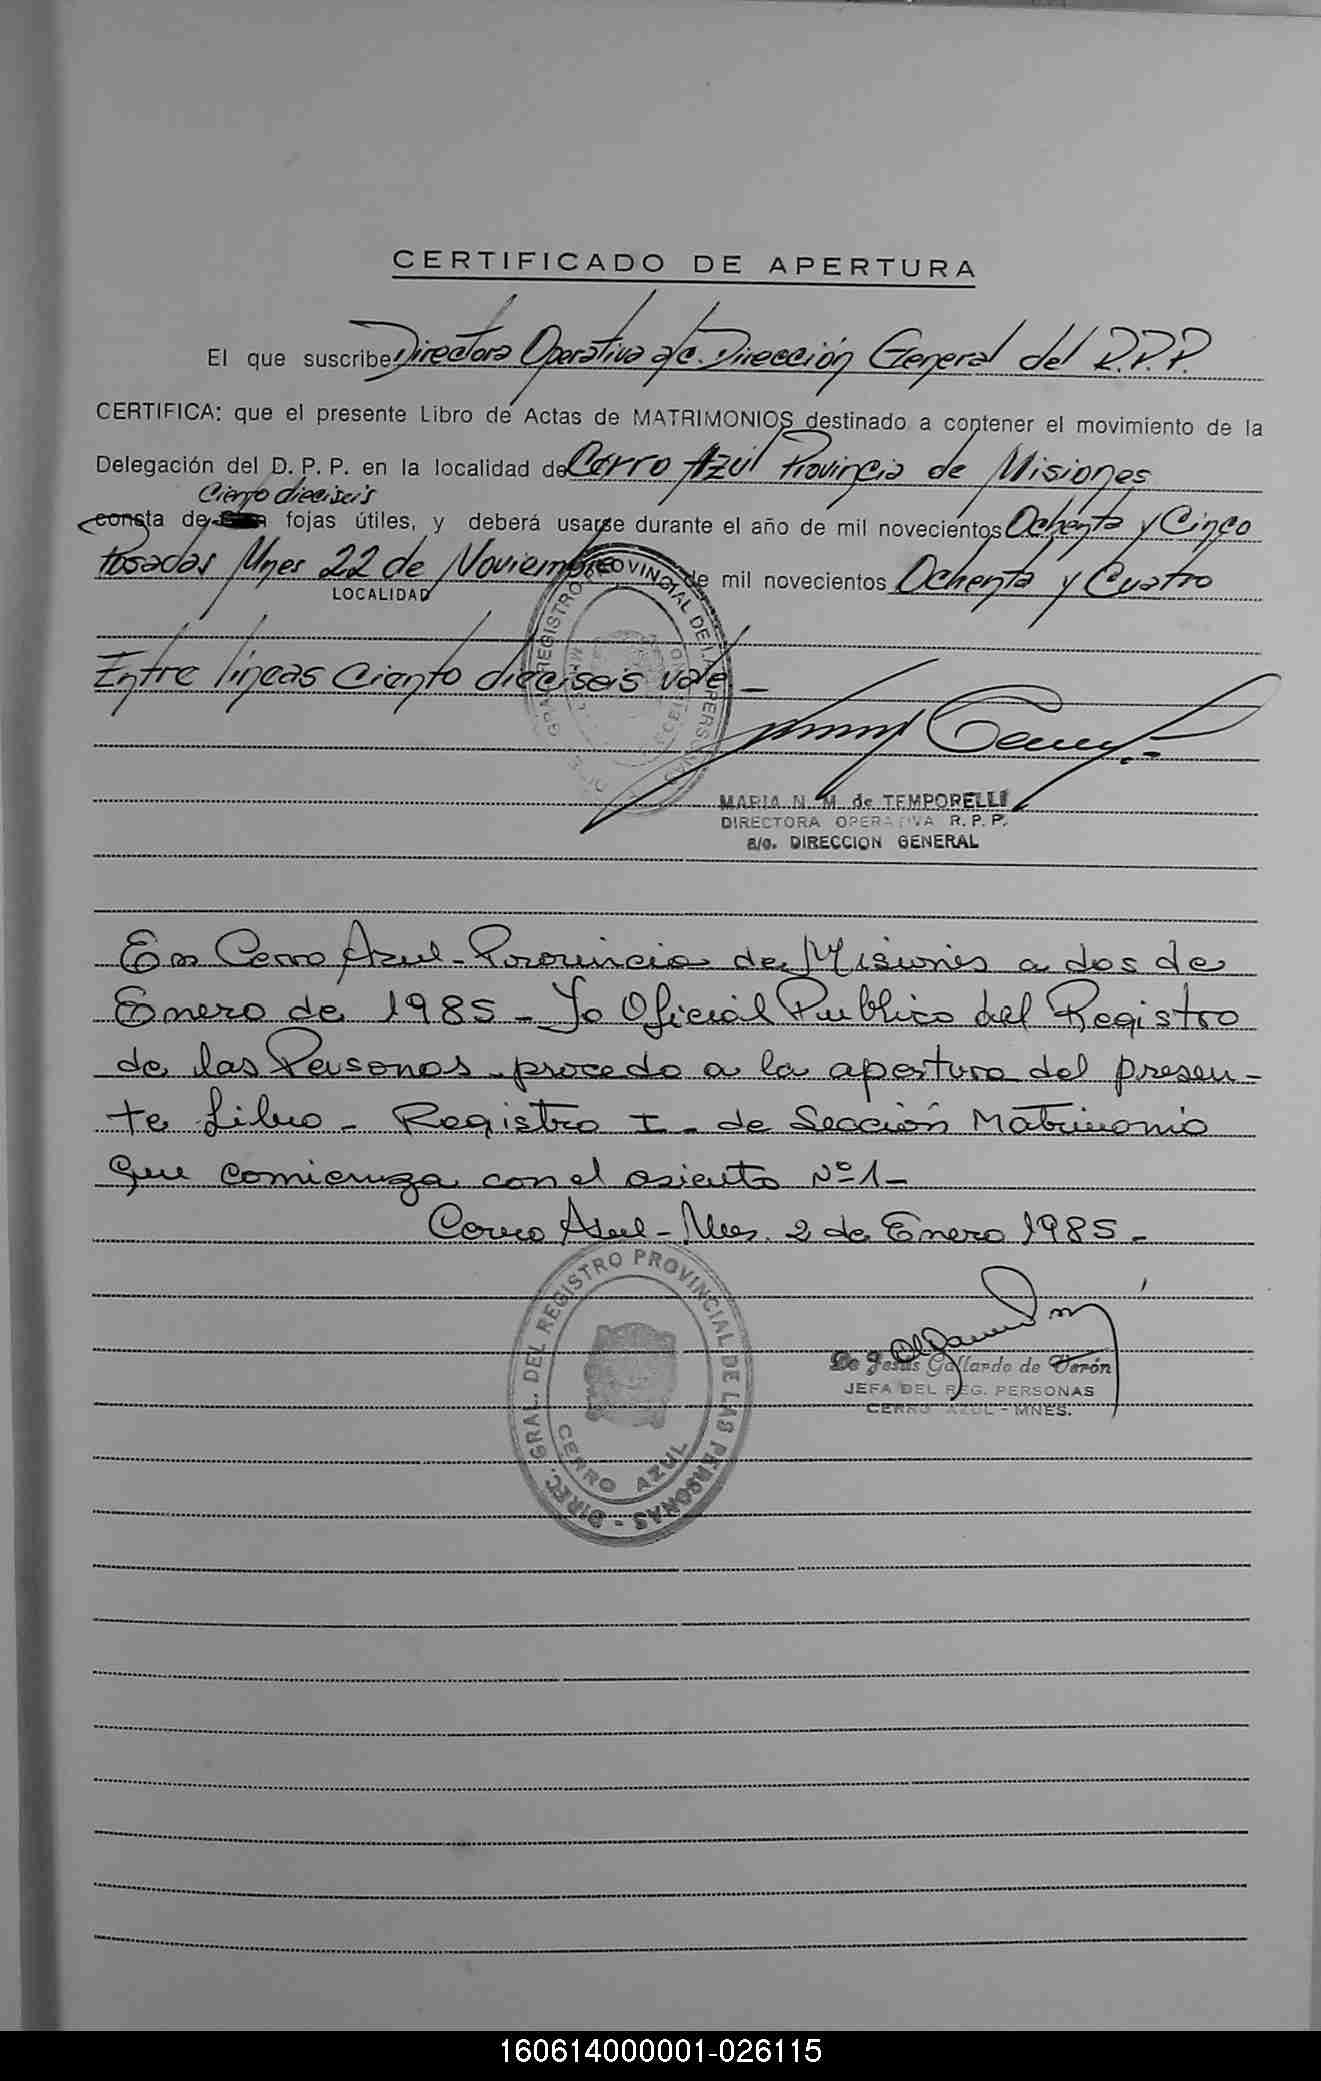 CERTIFICADO DE APERTURA
El que suscribe Directora Operativa a/c. Dirección General del R.P.P.
CERTIFICA: que el presente Libro de Actas de MATRIMONIOS destinado a contener el movimiento de la
Delegación del D. P. P. en la localidad de Cerro Azul Provincia de Misiones
Ciento dieciseis
consta de fojas útiles, y deberá usarse durante el año de mil novecientos Ochenta y Cinco
Posadas Mnes 22 de Noviembre de mil novecientos Ochenta y Cuatro
LOCALIDAD
Entre líneas Ciento dieciseis vale –
REGISTRO PROVINCIAL DE LAS PERSONAS
MARIA N. M. de TEMPORELLI
DIRECTORA OPERATIVA R. P. P.
a/c. DIRECCION GENERAL
En Cerro Azul - Provincia de Misiones a dos de
Enero de 1985 - Yo Oficial Publico del Registro
de las Personas procedo a la apertura del presen-
te Libro - Registro I - de Sección Matrimonio
que comienza con el asiento Nº 1 -
Cerro Azul - Mnes. 2 de Enero 1985 -
DIREC. GRAL. DEL REGISTRO PROVINCIAL DE LAS PERSONAS -
CERRO AZUL
De Jesús Gallardo de Verón
JEFA DEL REG. PERSONAS
CERRO AZUL - MNES.
160614000001-026115